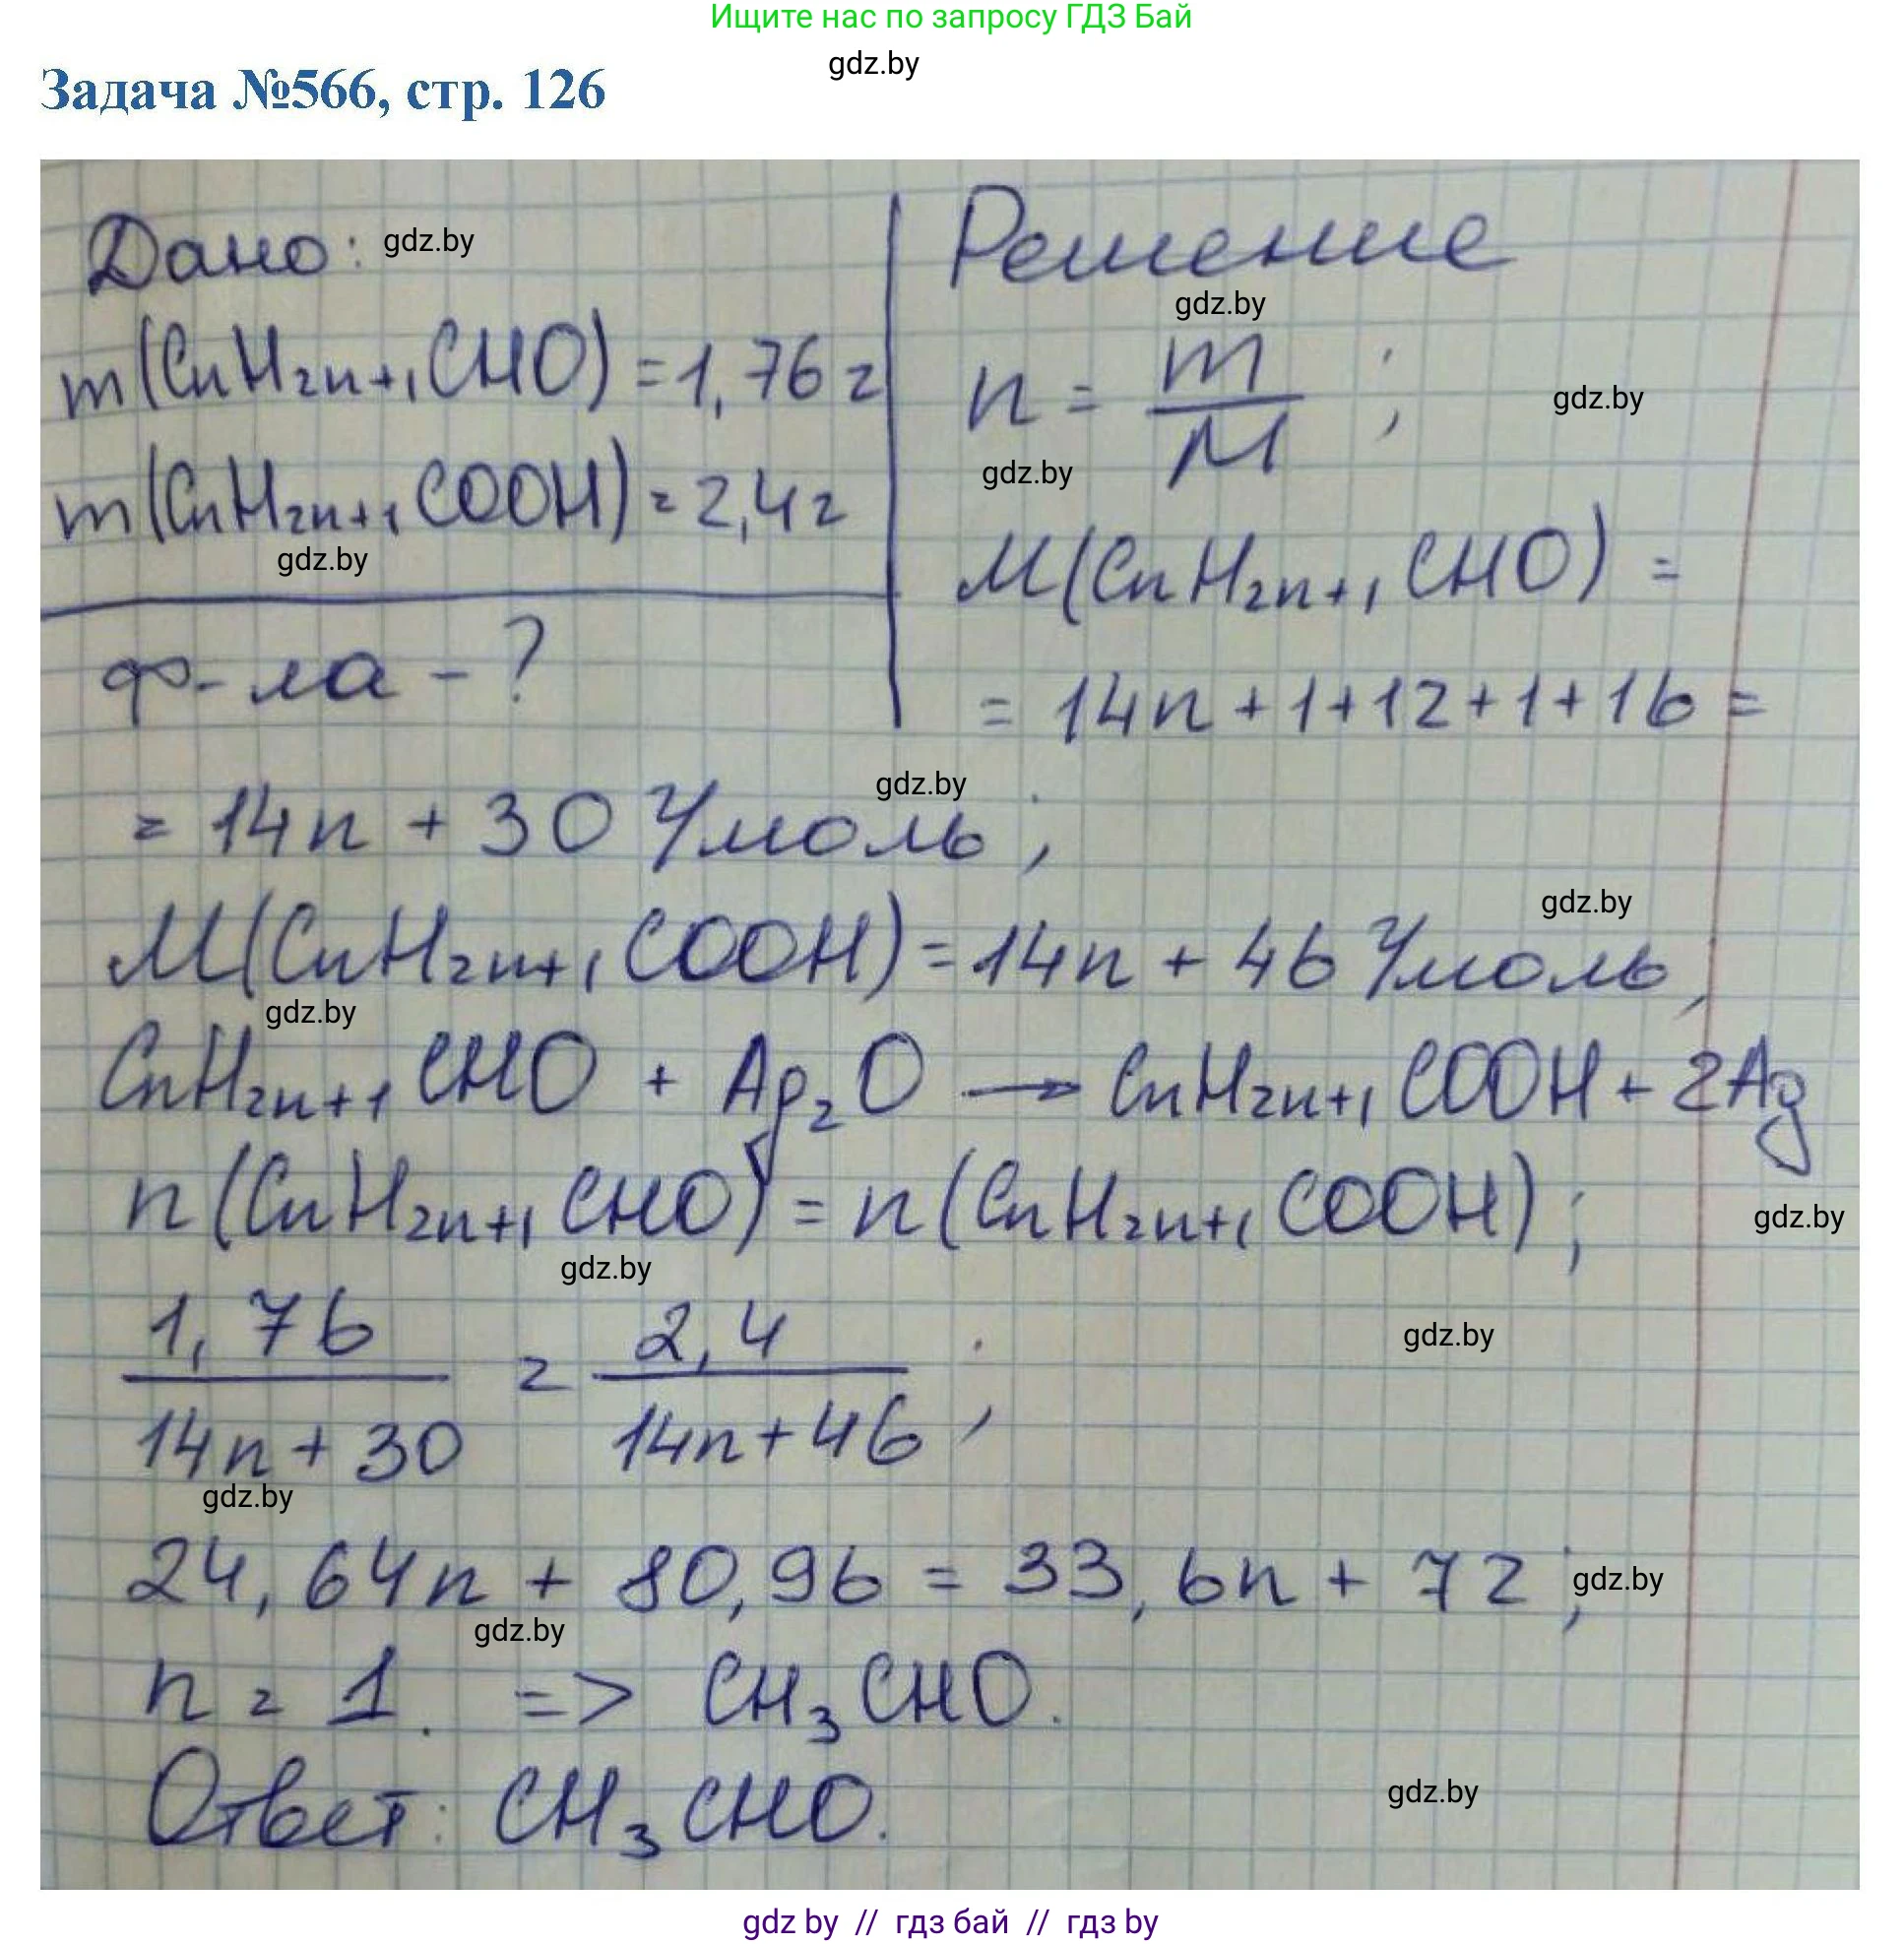 Ищите нас по запросу ГДЗ Бай
gdz.by
Задача №566, стр. 126
Дано: gdz.by
m(CnH2n+1CHO) = 1,76 г
m(CnH2n+1COOH) = 2,4 г
gdz.by
ф-ла - ?
Решение
gdz.by
n = m/M ;
gdz.by
gdz.by
M(CnH2n+1CHO) =
= 14n + 1 + 12 + 1 + 16 =
gdz.by
= 14n + 30 г/моль ;
gdz.by
M(CnH2n+1COOH) = 14n + 46 г/моль,
gdz.by
CnH2n+1CHO + Ag2O → CnH2n+1COOH + 2Ag
n(CnH2n+1CHO) = n(CnH2n+1COOH) ;
gdz.by
gdz.by
1,76/14n + 30 = 2,4/14n + 46 ;
gdz.by
gdz.by
24,64n + 80,96 = 33,6n + 72 ;
gdz.by
gdz.by
n = 1. => CH3CHO.
Ответ: CH3CHO.
gdz.by
gdz by // гдз бай // гдз by